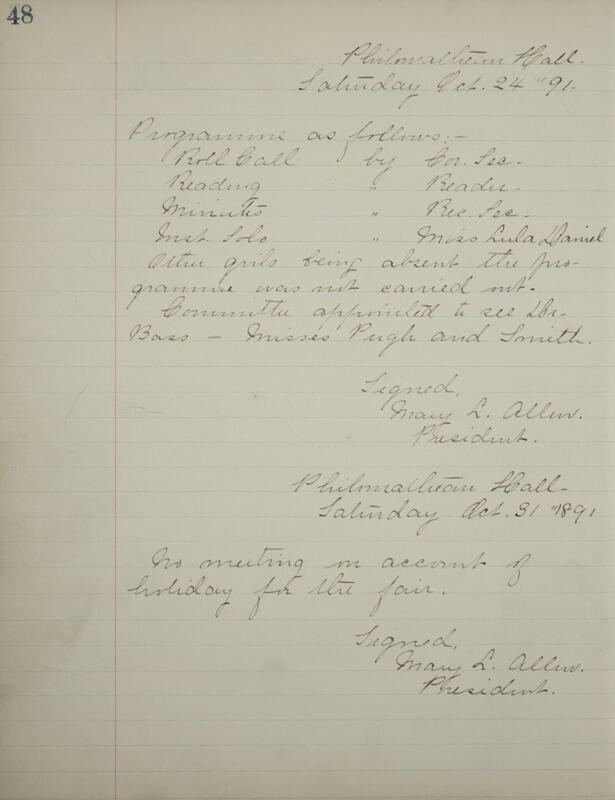 48
Philomathean Hall.
Saturday Oct. 24 "91.
Programme as follows:-
Roll Call by Cor. Sec.
Reading " Reader.
Minutes " Rec. Sec.
Inst. Solo " Miss Lula Daniel
Other girls being absent the pro-
gramme was not carried out.
Committee appointed to see Dr.
Bass - Misses Pugh and Smith.
Signed,
Mary L. Allen.
President.
Philomathean Hall-
Saturday Oct. 31 "1891
No meeting on account of
holiday for the fair.
Signed,
Mary L. Allen.
President.